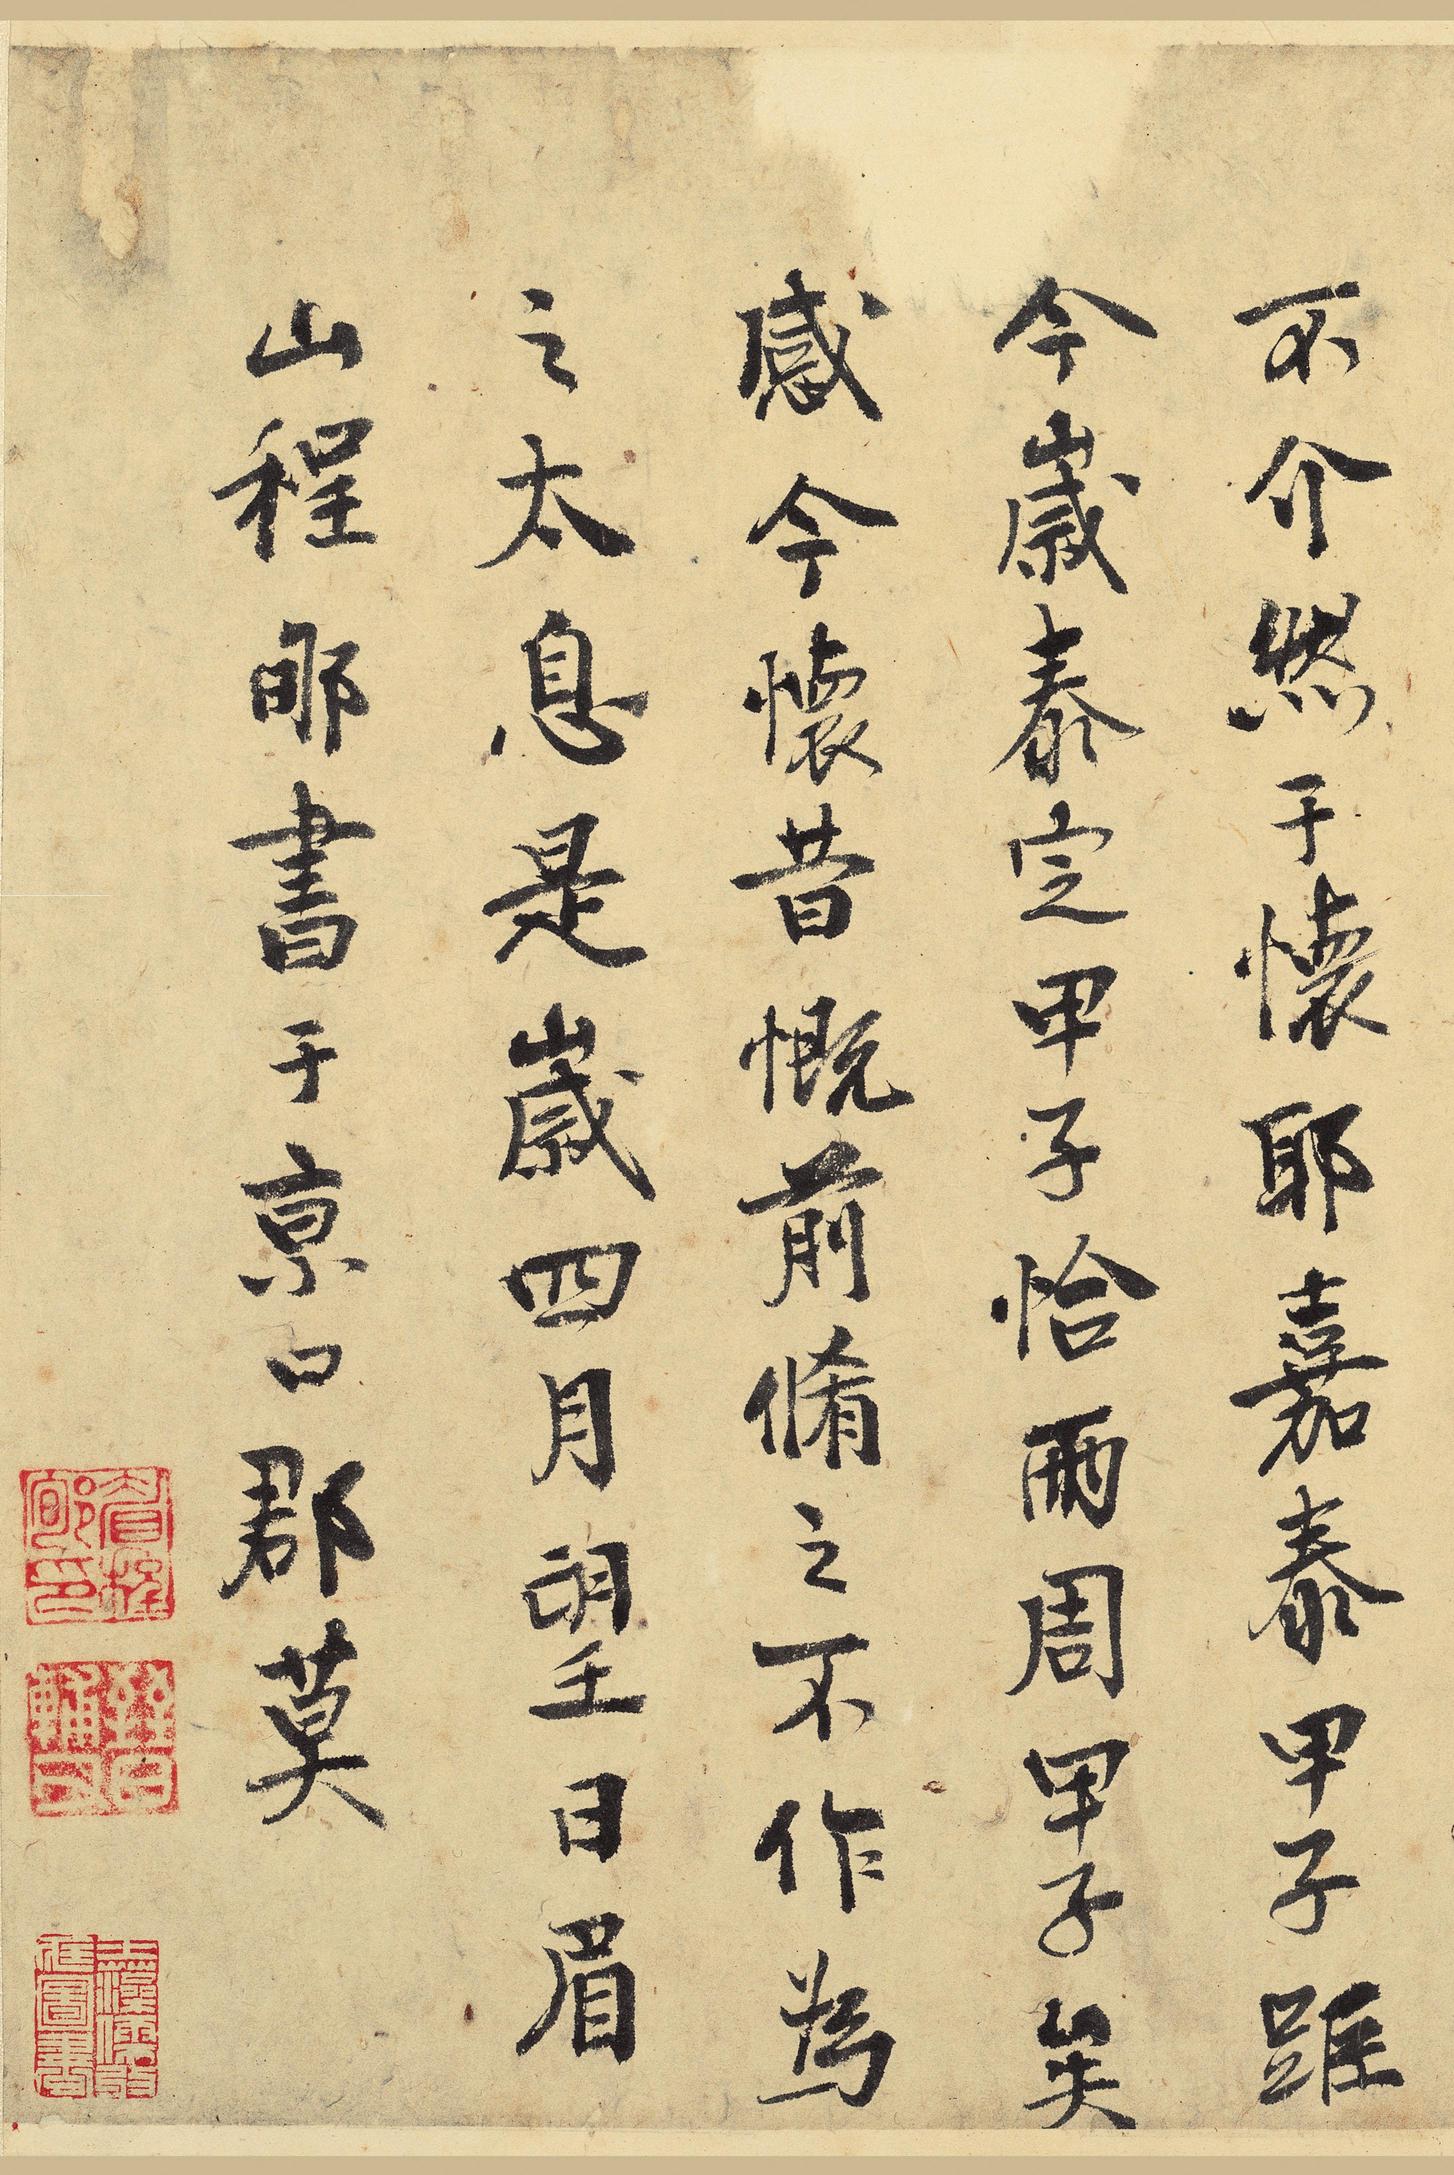 不介然于懷耶嘉泰甲子距
今歲泰定甲子恰兩周甲子矣
感今懷昔慨前脩之不作為
之太息是歲四月望日眉
山程郇書于京口郡莫
眉程郇印